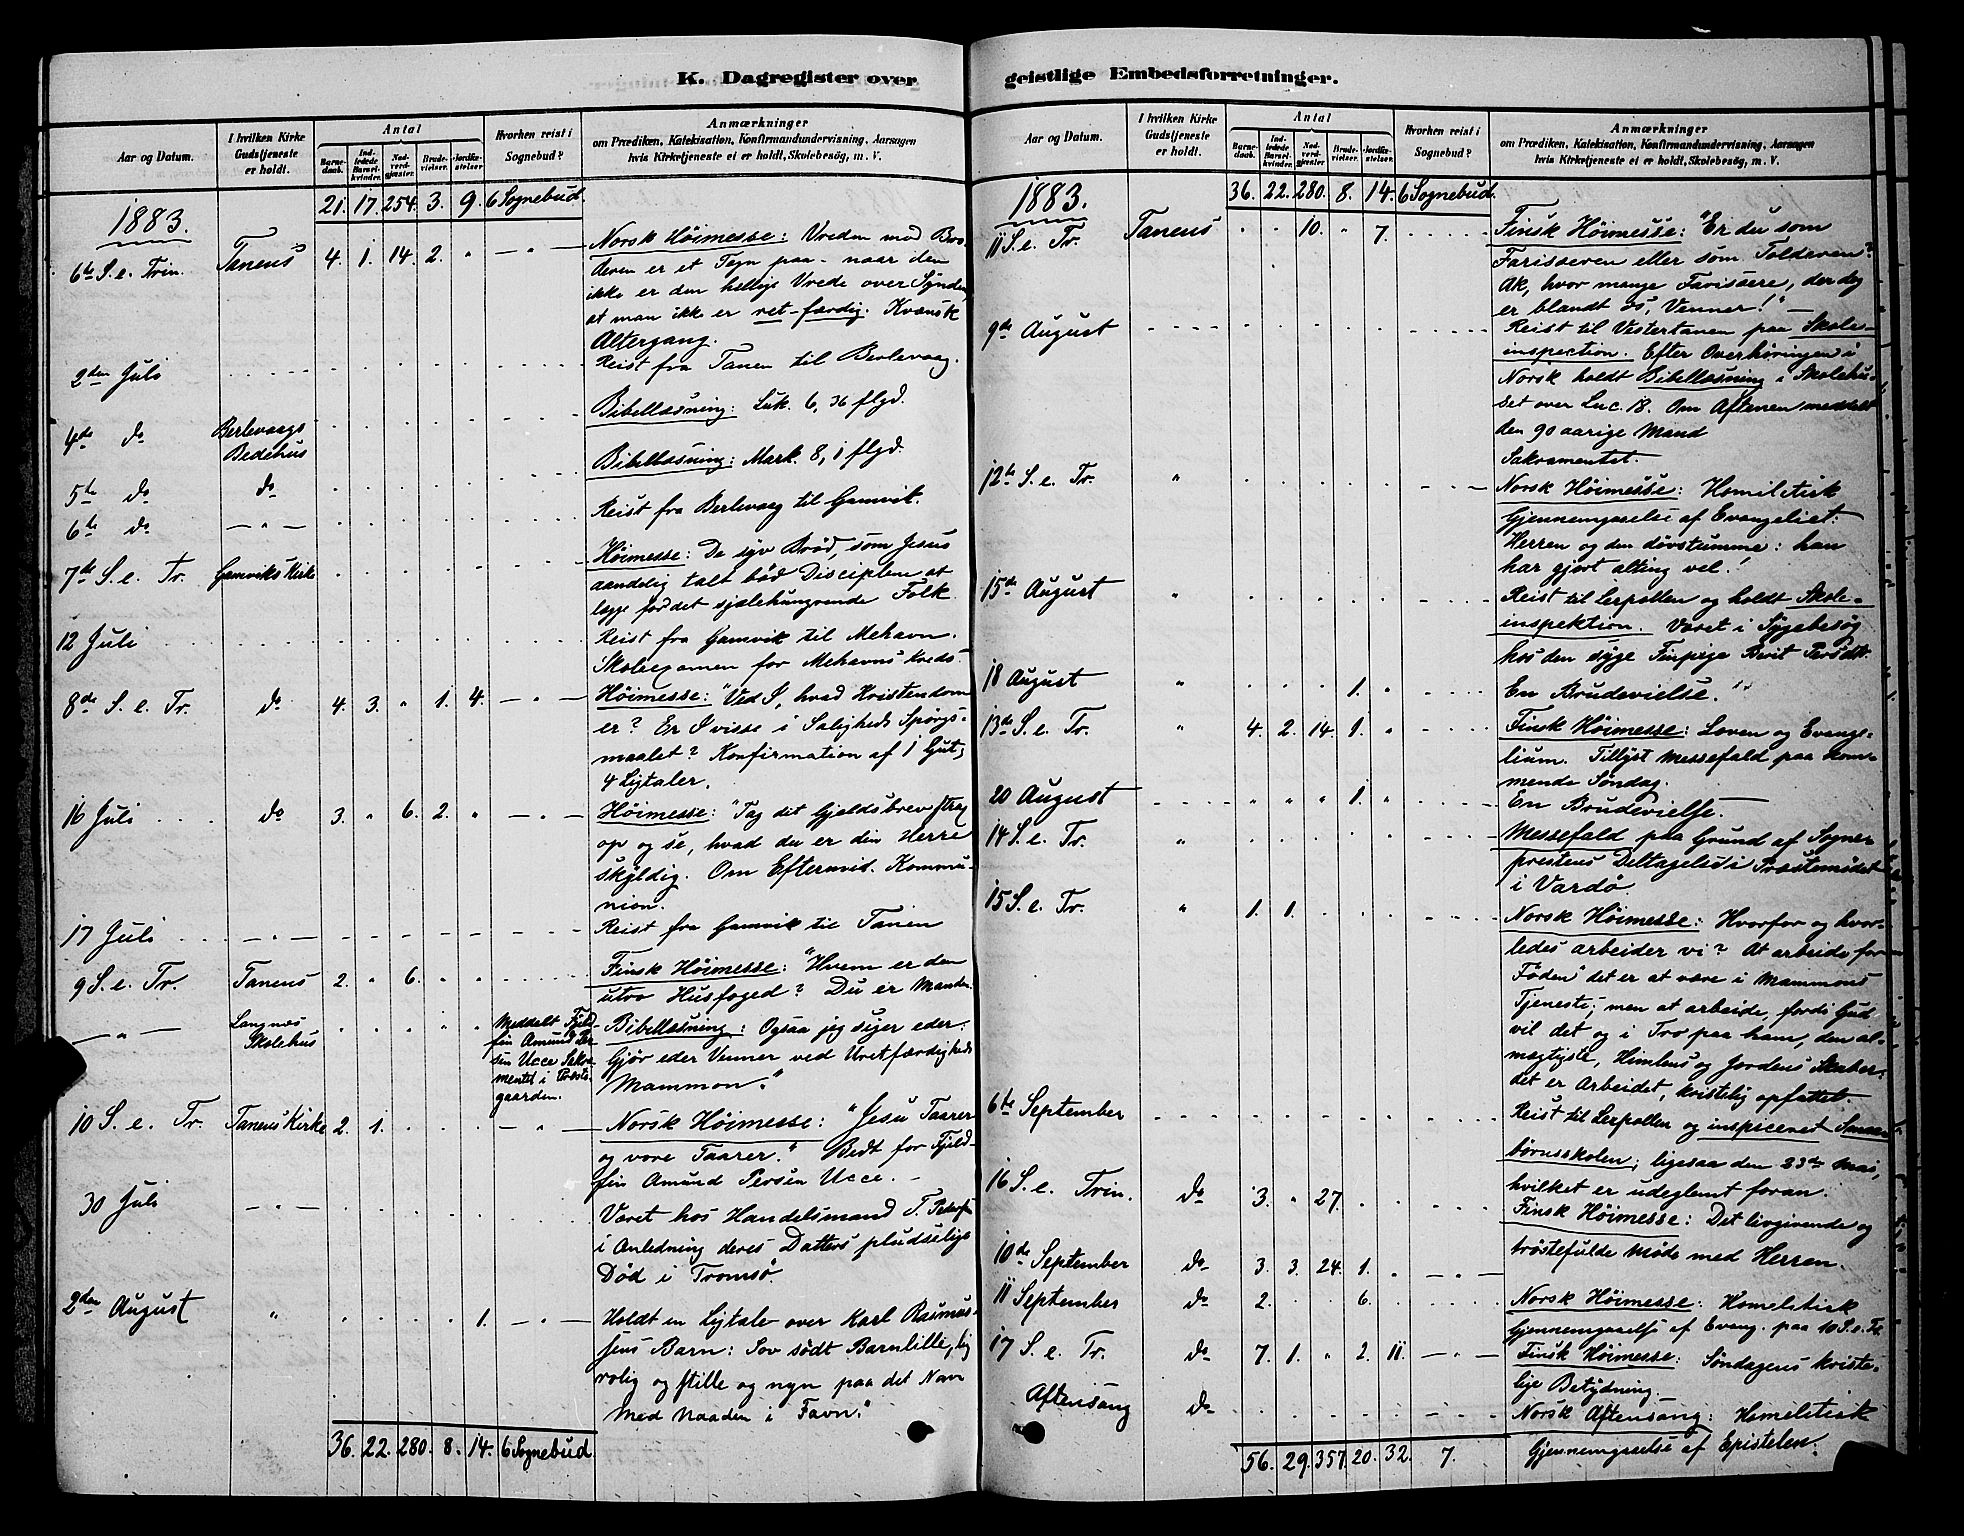 K. Dagregister over
Aar og Datum.
I hvilken Kirke Gudstjeneste er holdt.
Antal
Barnedaab.
Indledede Barselkvinder.
Nadverdgjæster.
Brudevielser.
Jordfæstelser.
Hvorhen reist i Sognebud?
Anmærkninger
om Prædiken, Katekisation, Konfirmandundervisning, Aarsagen
hvis Kirketjeneste ei er holdt, Skolebesøg, m. V.
21. 17. 254. 3. 9. 6 Sognebud.
1883.
6te S. e. Trin. Tanens 4. 1. 14. 2. " — " — Norsk Höimesse: Vreden mod Bro-
deren er et Tegn paa - naar den
ikke er den hellige Vrede over Synden,
at man ikke er ret-færdig. Kvænsk
Altergang.
2den Juli Reist fra Tanen til Berlevaag.
4de do Berlevaags Bedehus Bibellæsning: Luk. 6, 36 flgd.
5te do do Bibellæsning: Mark. 8, 1 flgd.
6te do — " — Reist fra Berlevaag til Gamvik.
7de S. e. Tr. Gamviks Kirke Höimesse: De syv Bröd, som Jesus
aandelig talt böd Disciplen at
lægge for det sjælehungrende Folk.
12 Juli Reist fra Gamvik til Mehavn.
Skoleexamen for Mehavns Kreds.
8de S. e. Tr. do 4. 3. " 1. 4. — " — Höimesse: "Ved I, hvad Kristendom
er? Er I visse i Saligheds Spörgs-
maalet? Konfirmation af 1 Gut,
4 Ligtaler.
16 Juli do 3. " 6. 2. " — " — Höimesse: "Tag dit Gjeldsbrev strax
op og se, hvad du er din Herre
skyldig. Om Eftermid. Kommu-
nion.
17 Juli — " — Reist fra Gamvik til Tanen
9 S. e. Tr. Tanens 2. " 6. " " Finsk Höimesse: "Hvem er den
utro Husfoged? Du er Manden.
— " — Langnæs Skolehus Meddelt Fjeld-
fin Amund Per-
sen Ucce Sakra-
mentet i Præste-
gaarden.
Bibellæsning: Ogsaa jeg siger eder:
Gjör eder Venner ved Uretfærdigheds
Mammon."
10 S. e. Tr. Tanens Kirke 2. 1. — " — Norsk Höimesse: "Jesu Taarer
og vore Taarer." Bedt for Fjeld-
fin Amund Persen Ucce.
30 Juli — " — Været hos Handelsmand
i Anledning deres Datters pludselige
Död i Tromsö.
2den August " 1. — " — Holdt en Ligtale over Karl Rasmus-
sens Barn: Sov södt Barnlille, lig
rolig og stille og nyn paa det Navn
med Naaden i Favn."
36. 22. 280. 8. 14. 6 Sognebud
geistlige Embedsforretninger.
Aar og Datum.
I hvilken Kirke Gudstjeneste er holdt.
Antal
Barnedaab.
Indledede Barselkvinder.
Nadverdgjæster.
Brudevielser.
Jordfæstelser.
Hvorhen reist i Sognebud?
Anmærkninger
om Prædiken, Katekisation, Konfirmandundervisning, Aarsagen
hvis Kirketjeneste ei er holdt, Skolebesøg, m. V.
1883. 36. 22. 280. 8. 14. 6 Sognebud.
11 S. e. Tr. Tanens 10. " 7. Finsk Höimesse: "Er du som
Farisæeren eller som Tolderen?
Ak, hvor mange Farisæere, der dog
er blandt os, Venner!"
9de August Reist til Vestertanen paa Skole-
inspection. Efter Overhöringen i
Norsk holdt Bibellæsning i Skolehu-
set over Luc. 18. Om Aftenen meddelt
den 90 aarige Mand
Sakramentet.
12te S. e. Tr. " Norsk Höimesse: Homiletisk
Gjennemgaaelse af Evangeliet:
Herren og den dövstumme: han
har gjort alting vel!
15de August " Reist til Lerpollen og holdt Skole-
inspektion. Været i Sygebesög
hos den syge Finpige Berit Persdt.
18 August " 1. " En Brudevielse.
13de S. e. Tr. " 4. 2. 14. 1. " Finsk Höimesse: Loven og Evange-
lium. Tillyst Messefald paa kom-
mende Söndag.
20 August " " " 1. " En Brudevielse.
14 S. e. Tr. " Messefald paa Grund af Sogne-
prestens Deltagelse i Præstemödet
i Vardö.
15 S. e. Tr. " 1. 1. Norsk Höimesse: Hvorfor og hvor-
ledes arbeider vi? At arbeide for
Föden" det er at være i Mammons
Tjeneste; men at arbeide, fordi Gud
vil det og i Tro paa ham, den al-
mægtigste, Himlens og Jordens Skaber:
det er Arbeidet, kristelig opfattet.
6te September Reist til Lerpollen og inspiceret Smaa-
börnsskolen; ligesaa den 23de Mai,
hvilket er udeglemt foran.
16 S. e. Trin. do 3. " 27. Finsk Höimesse: Det livgivende og
tröstefulde Möde med Herren.
10de September do 3. 3. 24. 1. " — " —
11 September do 2. 6. Norsk Höimesse: Homeletisk
Gjennemgaaelse af Evang. paa 10 S. e. Tr.
17 S. e. Tr. do 7. 1. " 2. 11. — " — Finsk Höimesse: Söndagens kriste-
lige Betydning.
Aftensang do Norsk Aftensang: Homeletisk
Gjennemgaaelse af Epistelen.
56. 29. 357. 20. 32. 7.